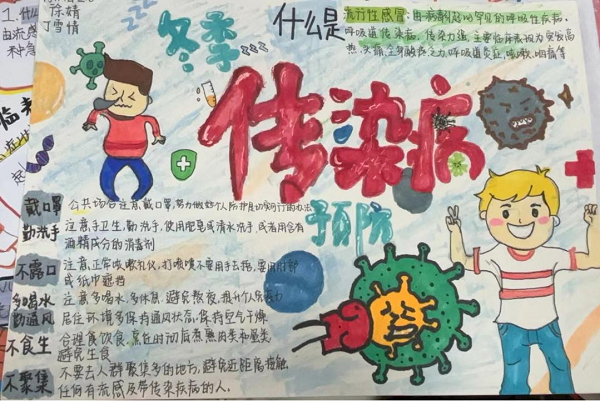 徐婧
丁雪情
1.什么
由流感
冬季
传染病
预防
什么是
流行性感冒:由病毒引起的罕见的呼吸性疾病.
呼吸道传染病,传染力强,主要临床表现为突发高
热,头痛,全身酸疼乏力,呼吸道炎症,咳嗽,咽痛等
戴口罩
公共场合注意戴口罩,努力做好个人防护
勤洗手
注意手卫生,勤洗手,使用肥皂或清水洗手,或者用含有
酒精成分的消毒剂
不露口
注意正常咳嗽礼仪,打喷嚏不要用手去捂,要用
或纸巾遮挡
多喝水
注意多喝水,多休息,避免熬夜,提升个人
勤通风
居住环境多保持通风状态,保持空气干燥
不食生
合理食饮食,烹饪时切后蒸熟肉类和蛋类
避免生食
不聚集
不要去人群聚集多的地方,避免近距离接触
任何有流感及带传染疾病的人.